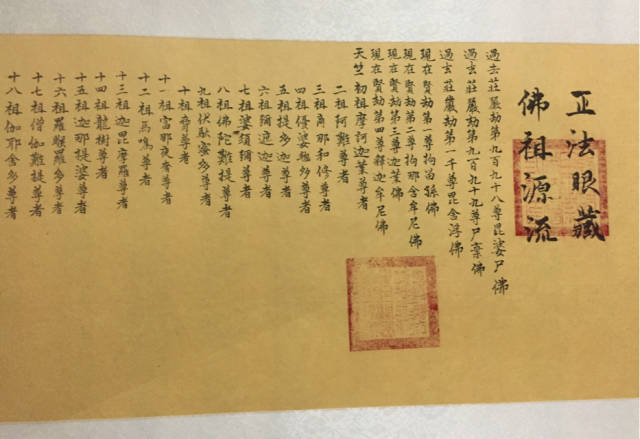 正法眼藏
佛祖源流
過去莊嚴劫第九百九十八尊毘婆尸佛
過去莊嚴劫第九百九十九尊尸棄佛
過去莊嚴劫第一千尊毘舍浮佛
現在賢劫第一尊拘留孫佛
現在賢劫第二尊拘那含牟尼佛
現在賢劫第三尊迦葉佛
現在賢劫第四尊釋迦牟尼佛
天竺初祖摩訶迦葉尊者
二祖阿難尊者
三祖商那和修尊者
四祖優婆毱多尊者
五祖提多迦尊者
六祖彌遮迦尊者
七祖婆須彌尊者
八祖佛陀難提尊者
九祖伏馱蜜多尊者
十祖脅尊者
十一祖富那夜奢尊者
十二祖馬鳴尊者
十三祖迦毘摩羅尊者
十四祖龍樹尊者
十五祖迦那提婆尊者
十六祖羅睺羅多尊者
十七祖僧伽難提尊者
十八祖伽耶舍多尊者